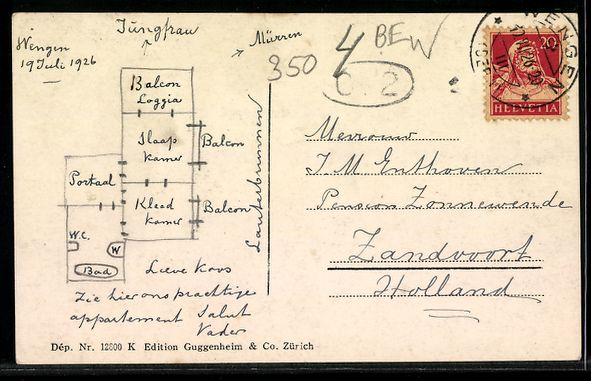 Jungfrau
Wengen
19 Juli 1926
Mürren
350
4 BEW
Balcon
Loggia
Slaap
kamer
Balcon
Portaal
Kleed
kamer
Balcon
W.C.
W
Bad
Lauterbrunnen
Lieve Koos
Zie hier ons prachtige
appartement Salut
Vader
WENGEN
20
HELVETIA
Mevrouw
J M Enthoven
Pension Zonnewende
Zandvoort
Holland
Dép. Nr. 12800 K Edition Guggenheim & Co. Zürich